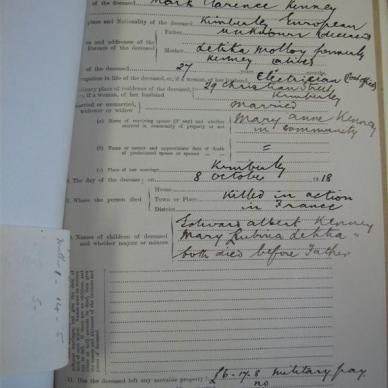 of the deceased, Mark Clarence Kenney
place and Nationality of the deceased Kimberley European
Father, unknown (deceased)
and addresses of the
Parents of the deceased
Mother, Letitia Molloy formerly
Kenney (alive)
of the deceased 27
occupation in life of the deceased, or, if a woman, of her husband Electrician
ordinary place of residence of the deceased, 29 Christian Street
or, if a woman, of her husband Kimberley
married or unmarried,
widower or widow married
(a) Name of surviving spouse (if any) and whether
married in community of property or not Mary Anne Kenney
in Community
(b) Name or names and approximate date of death
of predeceased spouse or spouses =
(c) Place of last marriage Kimberley
The day of the decease; on 8 October 1918
Where the person died
House
Town or Place, Killed in action
District in France
Names of children of deceased
and whether majors or minors
Edward Albert Kenney
Mary Letitia "
both died before Father
11. Has the deceased left any movable property £6-17-8 military pay
no